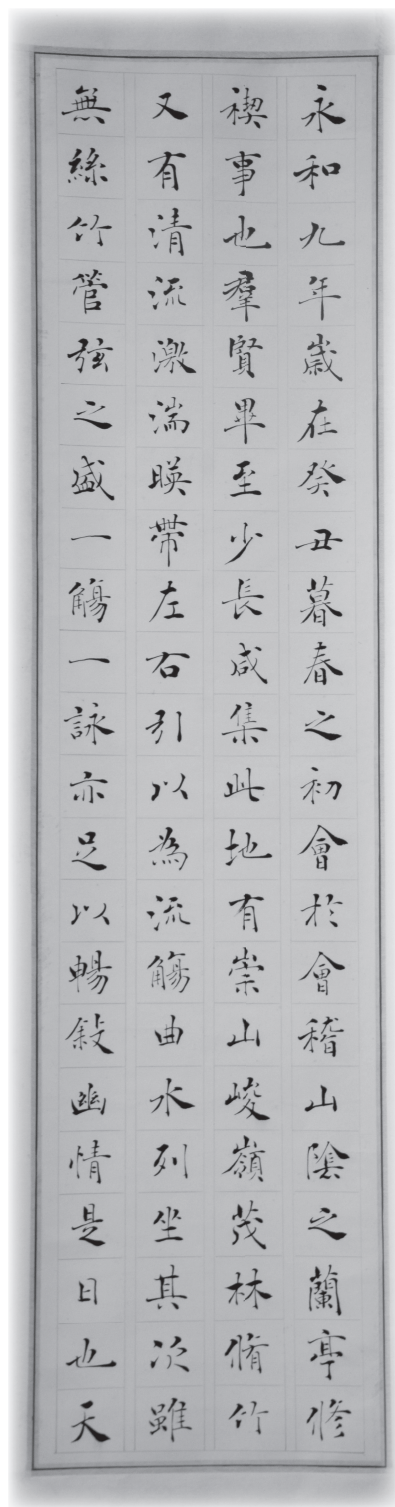 永和九年歲在癸丑暮春之初會於會稽山陰之蘭亭修
禊事也羣賢畢至少長咸集此地有崇山峻嶺茂林脩竹
又有清流激湍暎帶左右引以為流觴曲水列坐其次雖
無絲竹管弦之盛一觴一詠亦足以暢敘幽情是日也天